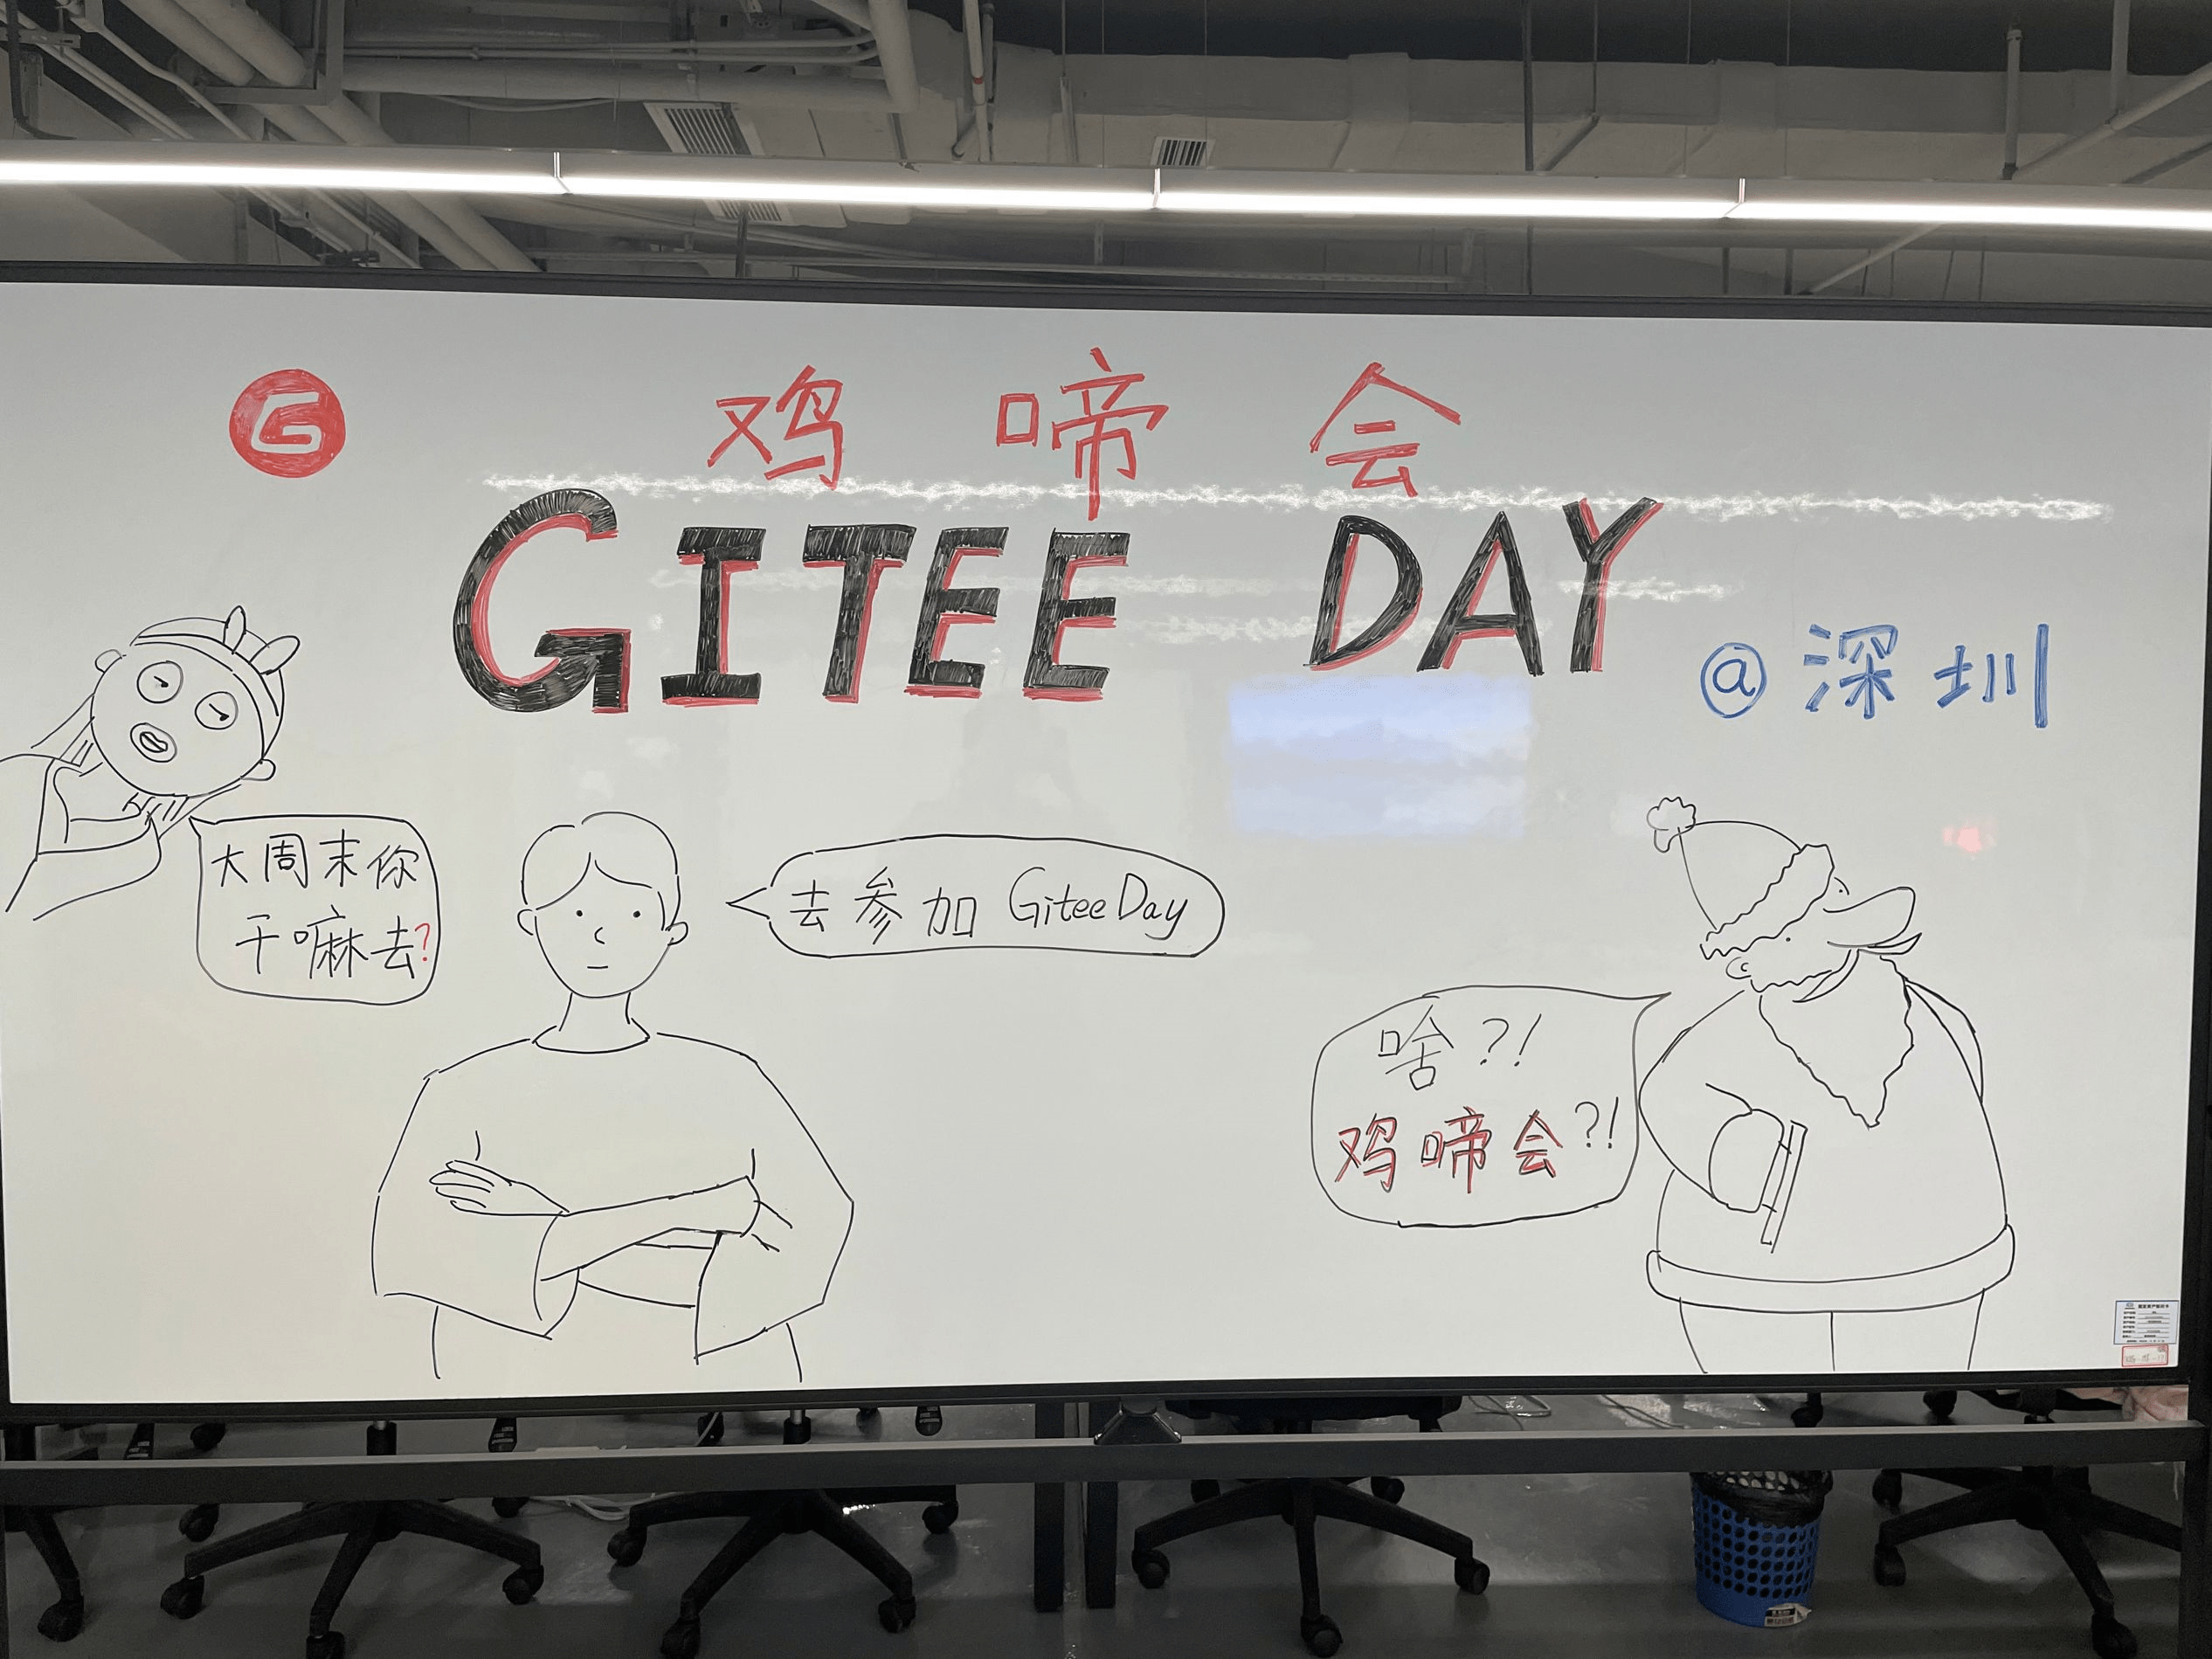 G
鸡啼会
GITEE DAY
@深圳
大周末你
干嘛去?
去参加 Gitee Day
啥?!
鸡啼会?!